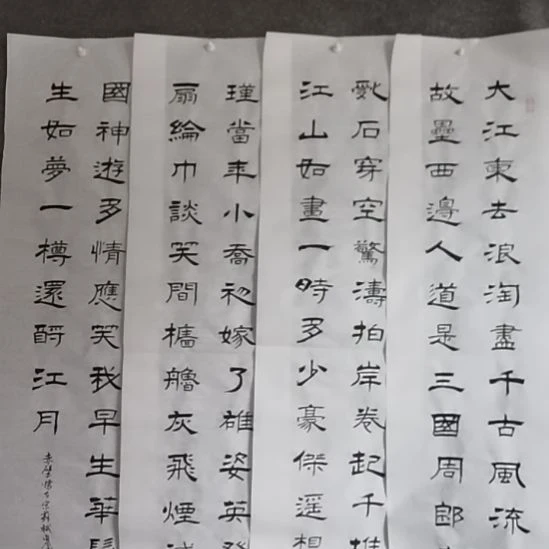 大江東去浪淘盡千古風流
故壘西邊人道是三國周郎
亂石穿空驚濤拍岸卷起千堆
江山如畫一時多少豪傑遥相
瑾當年小喬初嫁了雄姿英發
扇綸巾談笑間檣艣灰飛煙滅
國神遊多情應笑我早生華髮
生如夢一樽還酹江月
赤壁懷古